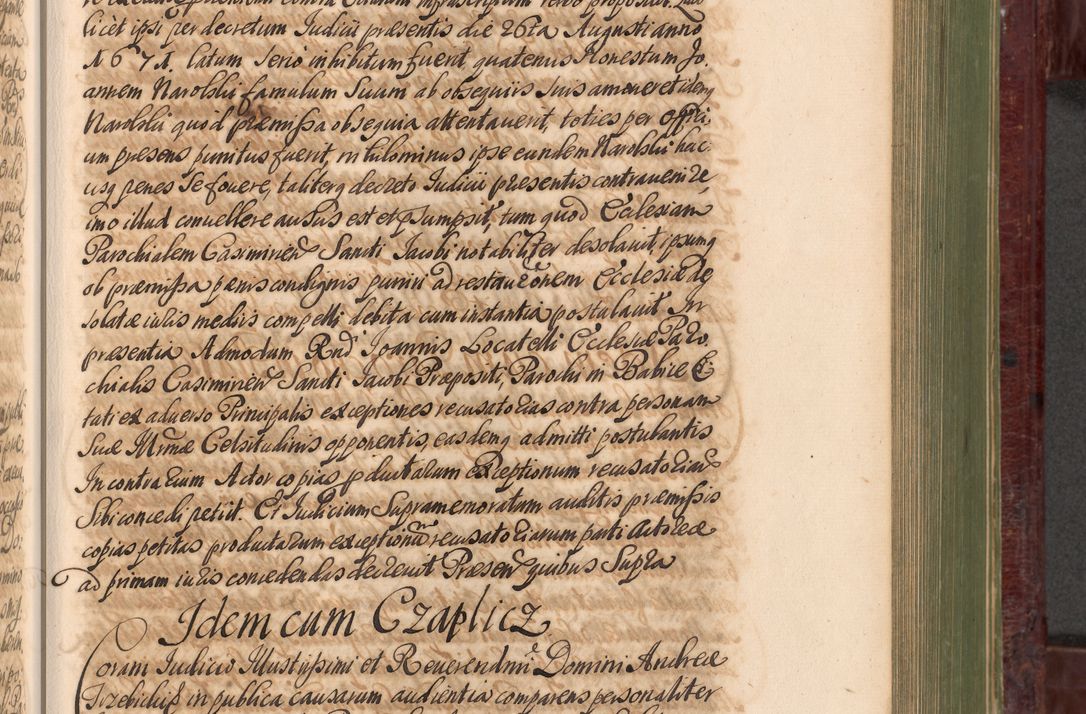 licet ipsi per decretum Iudicii præsentis die 26ta Augusti anno
1671. latum serio inhibitum fuerit, quatenus Honestum Jo,
annem Narolski famulum Suum ab obsequiis suis amoueret, idemq
Narolski quod præmissa obsequia attentauerit, toties per offici,
um præsens punitus fuerit, nihilominus ipse eundem Narolski hac
usq penes se fouere, taliterq decreto Iudicii præsentis contrauenire,
imo illud conuellere ausus est et præsumpsit, tum quod Ecclesiam
Parochialem Casimirien Sancti Jacobi notabiliter desolauit, ipsumq
ob præmissa pænis condignis puniri ad restaurãonem Ecclesiæ de
solatæ iuris mediis compelli debita cum instantia postulauit. In
præsentia Admodum Rndi Joannis Locatelli Ecclesiæ Paro
chialis Casimirien Sancti Jacobi Præpositi, Parochi in Babice Ci
tati ex aduerso Principalis exceptiones recusatorias contra personam
Suæ Illrmæ Celsitudinis opponentis, easdemq admitti postulantis
In contrarium Actor copias productarum exceptionum recusatoriarum
Sibi concedi petiit. Et Iudicium Supramemoratum auditis præmissis
copias petitas productarum exceptionum recusatoriarum parti Actoreæ
ad primam iuris concedendas decreuit Præsen quibus Supra
Idem cum Czaplicz
Coram Iudicio Illustrissimi et Reuerendmi Domini Andreæ
Trzebicki in publica causarum audientia comparens personaliter